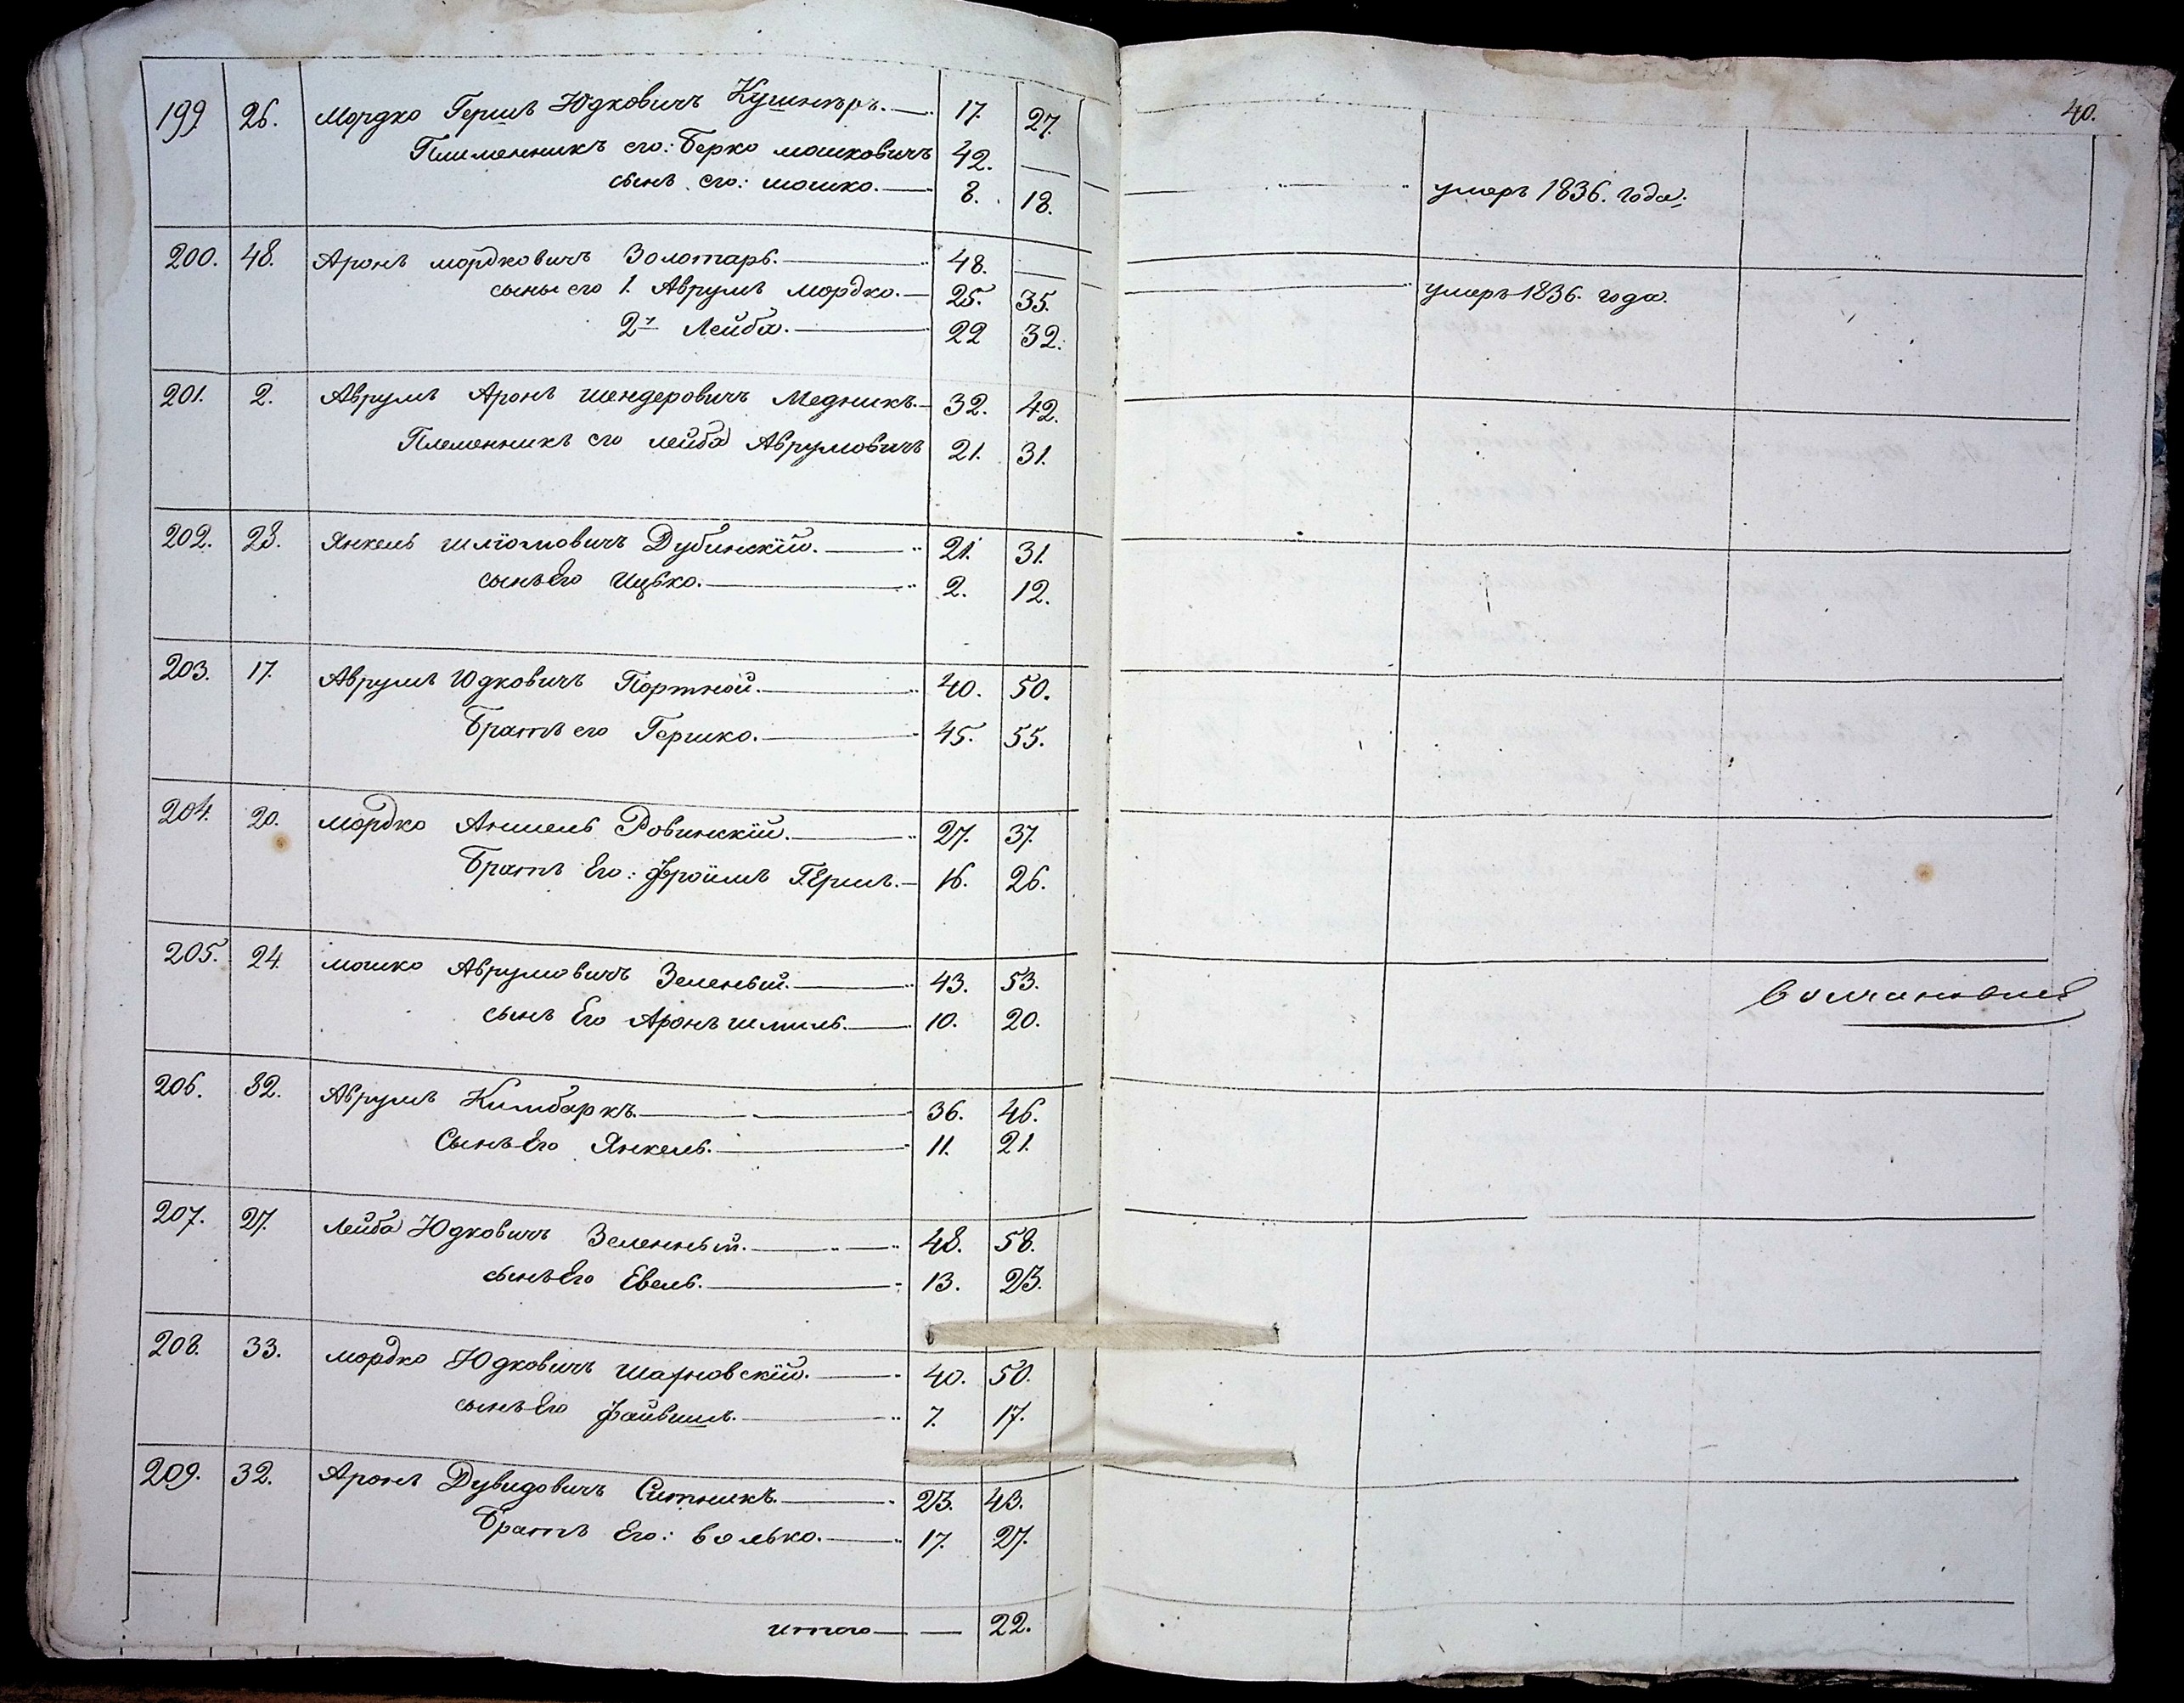 40.
199. 26. Мордко Гершъ Юдковичъ Кушниръ. 17. 27.
Племенникъ его: Берко мошковичъ 42. — умеръ 1836. года.
сынъ его: мошко. 8. 18.
200. 48. Аронъ мордковичъ Золотарь. 48. — умеръ 1836. года.
сыны его 1. Аврумъ мордко. 25. 35.
2й Лейба. 22 32.
201. 2. Аврумъ Аронъ шендеровичъ Медникъ. 32. 42.
Племенникъ его лейба Аврумовичъ 21. 31.
202. 23. Янкель шліомовичъ Дубинскій. 21. 31.
сынъ Его Ицько. 2. 12.
203. 17. Аврумъ Юдковичъ Портной. 40. 50.
Братъ его Гершко. 45. 55.
204. 20. мордко Аншель Ровинскій. 27. 37.
Братъ Его: Фроимъ Гершъ. 16. 26.
205. 24. мошко Аврумовичъ Зеленый. 43. 53.
сынъ Его Аронъ шмиль. 10. 20.
206. 32. Аврумъ Кимбаркъ. 36. 46.
Сынъ Его Янкель. 11. 21.
207. 27. Лейба Юдковичъ Зеленный. 48. 58.
сынъ Его Евель. 13. 23.
208. 33. мордко Юдковичъ шарновскій. 40. 50.
сынъ Его файвишъ. 7. 17.
209. 32. Аронъ Дувидовичъ Ситникъ. 23. 43.
Братъ Его: волько. 17. 27.
итого — 22.